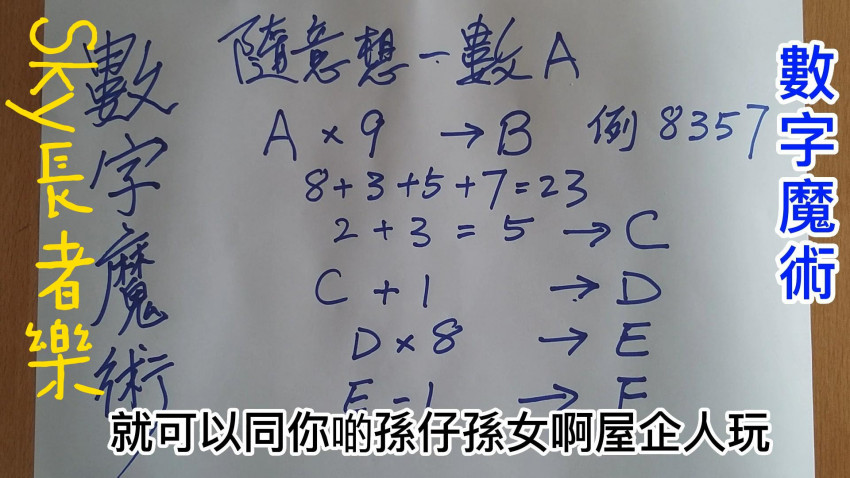 Sky長者樂
數字魔術
隨意想一數A
A × 9 → B 例 8357
8+3+5+7=23
2+3=5 → C
C+1 → D
D×8 → E
E-1 → F
數字魔術
就可以同你啲孫仔孫女啊屋企人玩